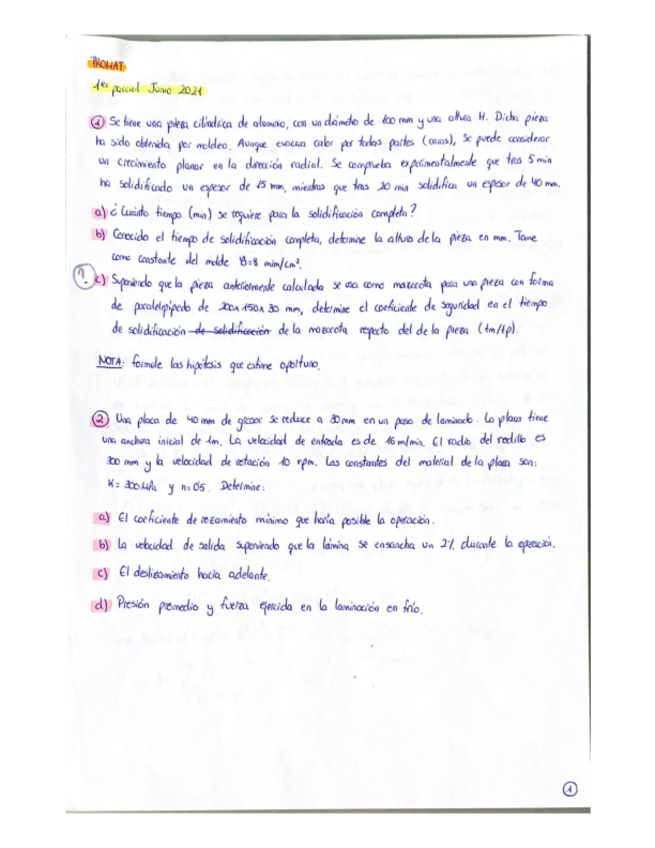 PROMAT
1er parcial Junio 2021
① Se tiene una pieza cilíndrica de aluminio, con un diámetro de 100 mm y una altura H. Dicha pieza
ha sido obtenida por moldeo. Aunque evacua calor por todas partes (caras), se puede considerar
un crecimiento planar en la dirección radial. Se comprueba experimentalmente que tras 5 min
ha solidificado un espesor de 15 mm, mientras que tras 20 min solidifica un espesor de 40 mm.
a) ¿Cuánto tiempo (min) se requiere para la solidificación completa?
b) Conocido el tiempo de solidificación completa, determine la altura de la pieza en mm. Tome
como constante del molde B=8 min/cm².
?
c) Suponiendo que la pieza anteriormente calculada se usa como mazarota para una pieza con forma
de paralelepípedo de 200x150x30 mm, determine el coeficiente de seguridad en el tiempo
de solidificación de solidificación de la mazarota respecto del de la pieza (tm/tp).
NOTA: formule las hipótesis que estime oportuno.
② Una placa de 40 mm de grosor se reduce a 30 mm en un paso de laminado. La placa tiene
una anchura inicial de 1m. La velocidad de entrada es de 16 m/min. El radio del rodillo es
300 mm y la velocidad de rotación 10 rpm. Las constantes del material de la placa son:
K= 300 MPa y n=0.5. Determine:
a) El coeficiente de rozamiento mínimo que haría posible la operación.
b) La velocidad de salida suponiendo que la lámina se ensancha un 2% durante la operación.
c) El deslizamiento hacia adelante.
d) Presión promedio y fuerza ejercida en la laminación en frío.
1